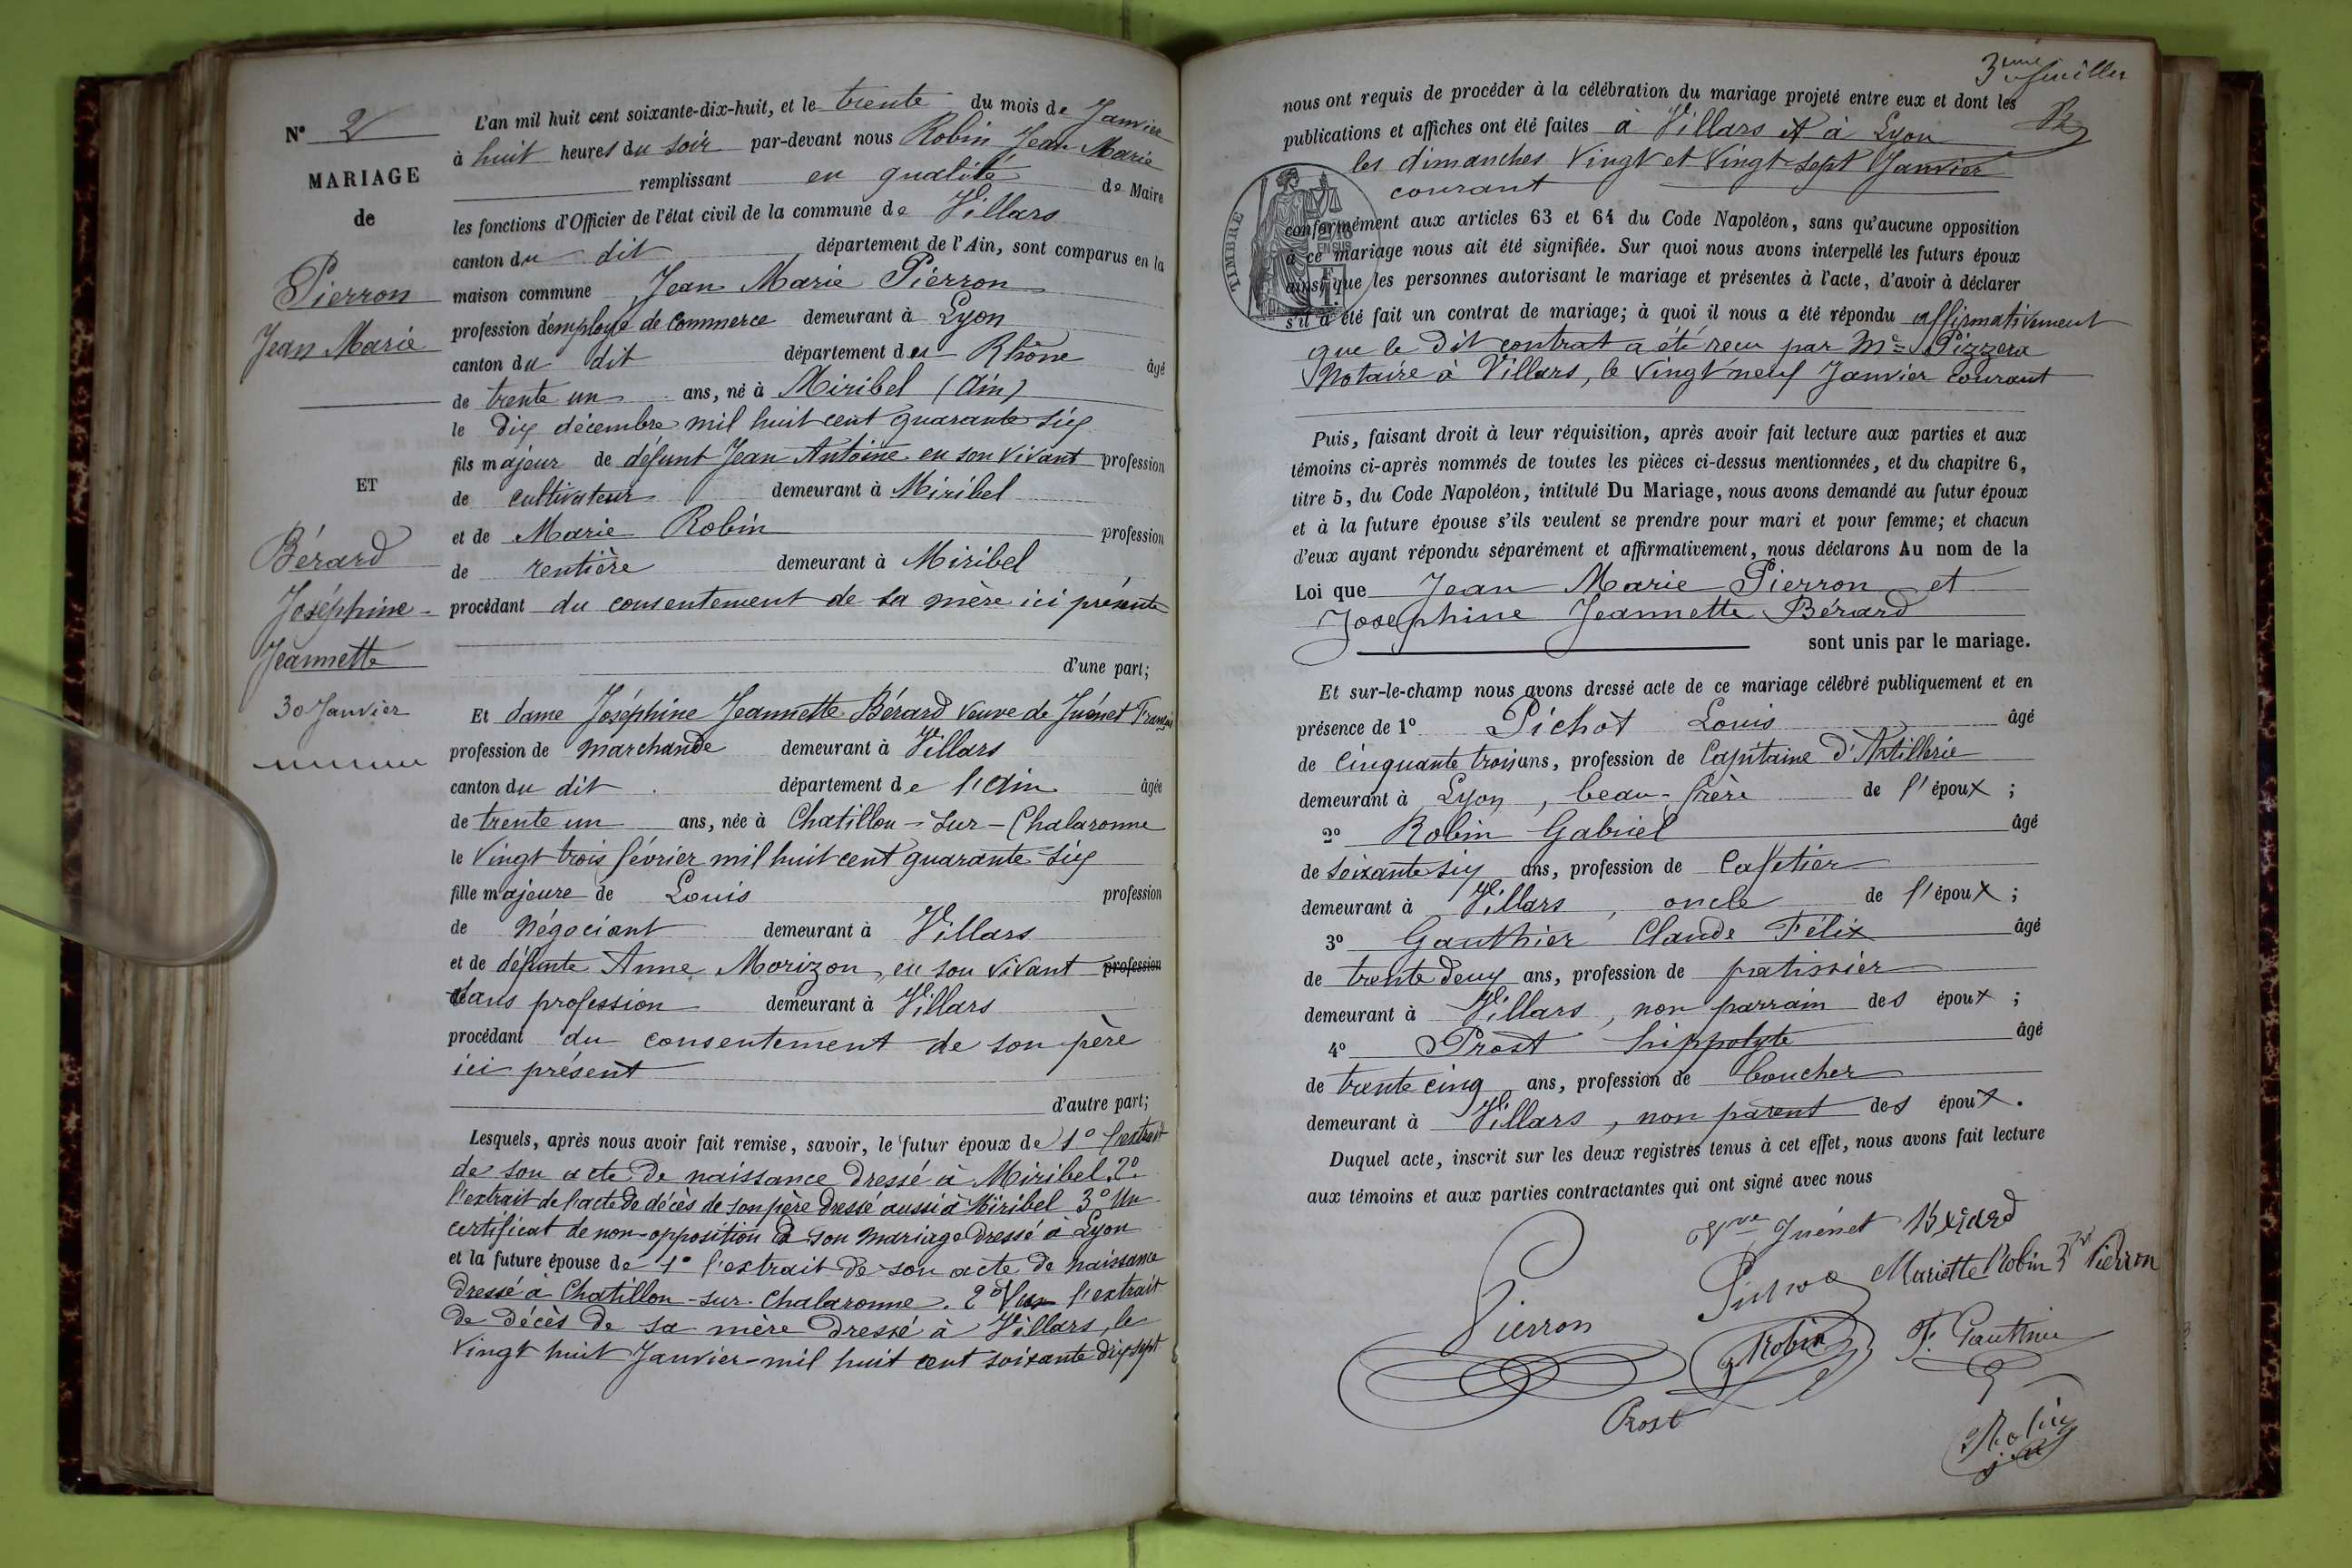 N° 2
MARIAGE
de
Pierron
Jean Marie
ET
Bérard
Joséphine
Jeannette
30 Janvier
L'an mil huit cent soixante-dix-huit, et le trente du mois de Janvier
à huit heures du soir par-devant nous Robin Jean Marie
remplissant en qualité de Maire
les fonctions d'Officier de l'état civil de la commune de Villars
canton du dit département de l'Ain, sont comparus en la
maison commune Jean Marie Pierron
profession d'employé de commerce demeurant à Lyon
canton du dit département du Rhône âgé
de trente un ans, né à Miribel (Ain)
le dix décembre mil huit cent quarante six
fils majeur de défunt Jean Antoine en son vivant profession
de cultivateur demeurant à Miribel
et de Marie Robin profession
de rentière demeurant à Miribel
procédant du consentement de sa mère ici présente
d'une part;
Et dame Joséphine Jeannette Bérard veuve de Juénet François
profession de marchande demeurant à Villars
canton du dit département de l'Ain âgée
de trente un ans, née à Chatillon-sur-Chalaronne
le vingt trois février mil huit cent quarante six
fille majeure de Louis profession
de négociant demeurant à Villars
et de défunte Anne Morizon, en son vivant profession
sans profession demeurant à Villars
procédant du consentement de son père
ici présent
d'autre part;
Lesquels, après nous avoir fait remise, savoir, le futur époux de 1° l'extrait
de son acte de naissance dressé à Miribel, 2°
l'extrait de l'acte de décès de son père dressé aussi à Miribel 3° Un
certificat de non-opposition à son mariage dressé à Lyon
et la future épouse de 1° l'extrait de son acte de naissance
dressé à Chatillon-sur-Chalaronne. 2° l'extrait
de décès de sa mère dressé à Villars, le
vingt huit Janvier mil huit cent soixante dix sept
3ème feuillet
nous ont requis de procéder à la célébration du mariage projeté entre eux et dont les
publications et affiches ont été faites à Villars et à Lyon
les dimanches vingt et vingt-sept Janvier
courant
TIMBRE
conformément aux articles 63 et 64 du Code Napoléon, sans qu'aucune opposition
à ce mariage nous ait été signifiée. Sur quoi nous avons interpellé les futurs époux
ainsi que les personnes autorisant le mariage et présentes à l'acte, d'avoir à déclarer
s'il a été fait un contrat de mariage; à quoi il nous a été répondu affirmativement
que le dit contrat a été reçu par Me Pizzera
Notaire à Villars, le vingt neuf Janvier courant
Puis, faisant droit à leur réquisition, après avoir fait lecture aux parties et aux
témoins ci-après nommés de toutes les pièces ci-dessus mentionnées, et du chapitre 6,
titre 5, du Code Napoléon, intitulé Du Mariage, nous avons demandé au futur époux
et à la future épouse s'ils veulent se prendre pour mari et pour femme; et chacun
d'eux ayant répondu séparément et affirmativement, nous déclarons Au nom de la
Loi que Jean Marie Pierron et
Josephine Jeannette Bérard
sont unis par le mariage.
Et sur-le-champ nous avons dressé acte de ce mariage célébré publiquement et en
présence de 1° Pichot Louis âgé
de cinquante trois ans, profession de Capitaine d'Artillerie
demeurant à Lyon, beau-frère de l'époux ;
2° Robin Gabriel âgé
de soixante six ans, profession de cafetier
demeurant à Villars, oncle de l'époux ;
3° Gauthier Claude Félix âgé
de trente deux ans, profession de patissier
demeurant à Villars, non parrain des époux ;
4° Prost hippolyte âgé
de trente cinq ans, profession de boucher
demeurant à Villars, non parent des époux.
Duquel acte, inscrit sur les deux registres tenus à cet effet, nous avons fait lecture
aux témoins et aux parties contractantes qui ont signé avec nous
Vve Juénet Bérard
Mariette Robin Pierron
Pierron
Robin
F. Gauthier
Prost
Robin